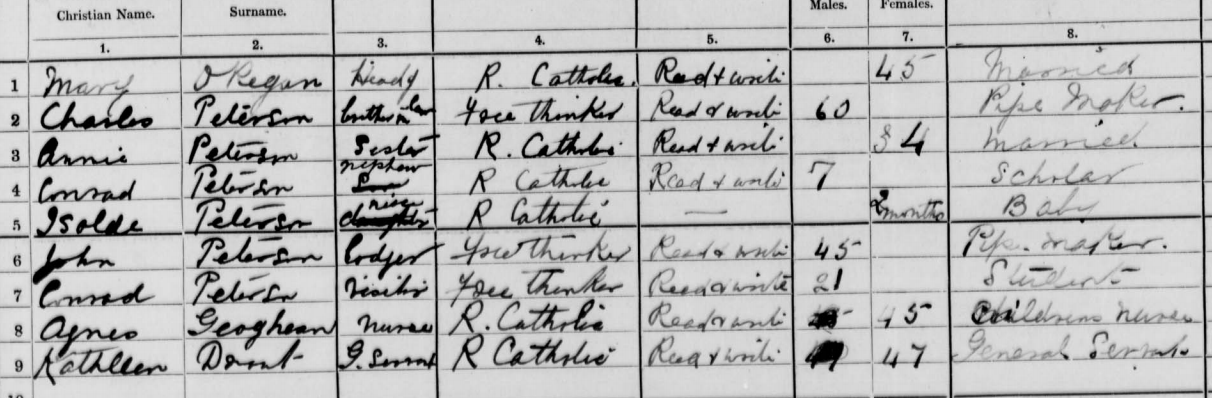 Christian Name. Surname. Males. Females.
1. 2. 3. 4. 5. 6. 7. 8.
1 Mary O'Regan Head R. Catholic. Read & write 45 Married
2 Charles Peterson brother in law Free thinker Read & write 60 Pipe Maker.
3 Annie Peterson Sister R. Catholic Read & write 34 Married
4 Conrad Peterson nephew Son R Catholic Read & write 7 Scholar
5 Isolde Peterson niece daughter R Catholic — 2 months Baby
6 John Peterson Lodger Free thinker Read & write 45 Pipe Maker.
7 Conrad Peterson Visitor Free thinker Read & write 21 Student
8 Agnes Geoghean Nurse R. Catholic Read & write 45 Childrens Nurse
9 Kathleen G. Servant R Catholic Read & write 47 General Servant
10